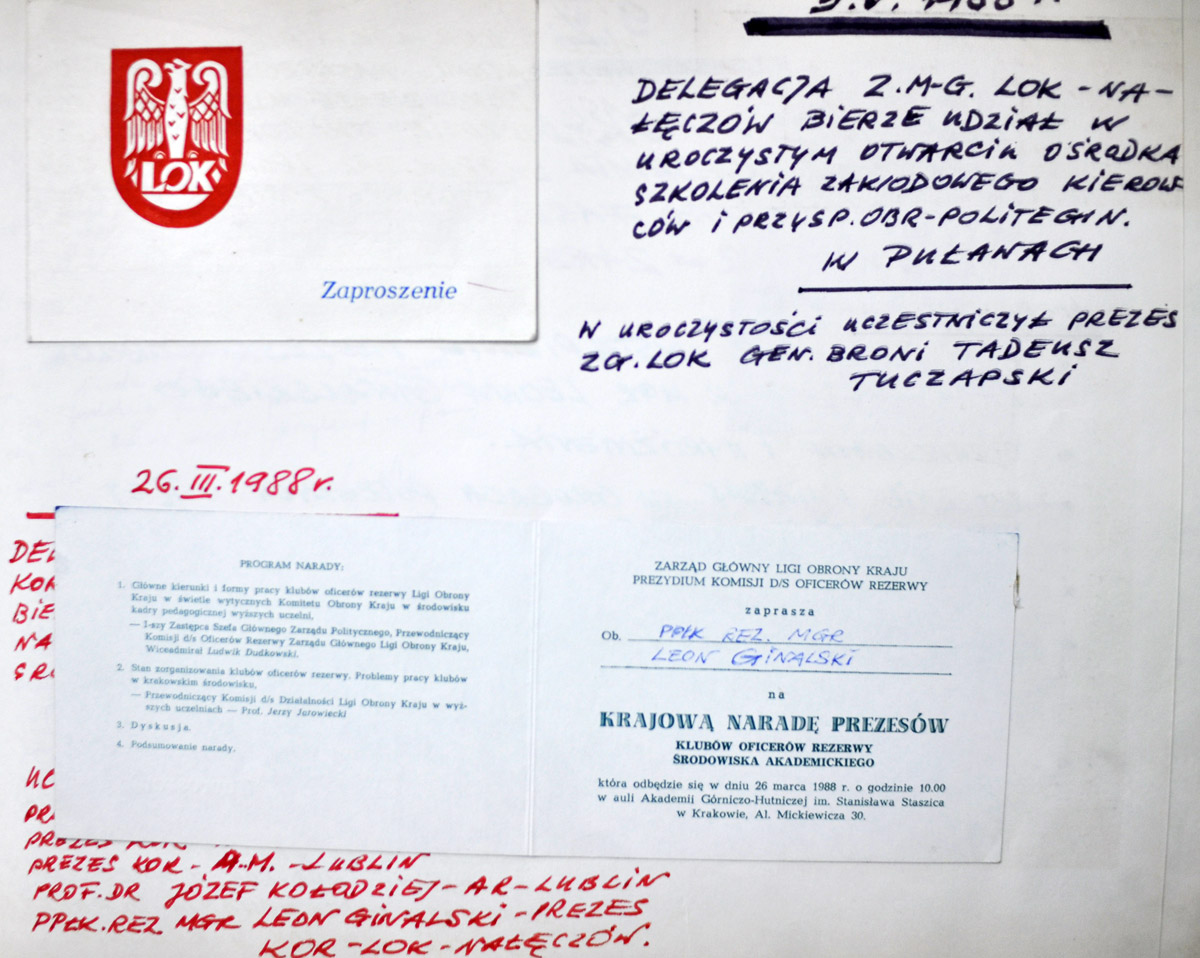 LOK
Zaproszenie
DELEGACJA Z.M-G. LOK - NA-
ŁĘCZÓW BIERZE UDZIAŁ W
UROCZYSTYM OTWARCIU OŚRODKA
SZKOLENIA ZAWODOWEGO KIEROW
CÓW I PRZYSP. OBR-POLITEGIN.
W PUŁAWACH
W UROCZYSTOŚCI UCZESTNICZYŁ PREZES
ZG. LOK GEN. BRONI TADEUSZ
TUCZAPSKI
26.III.1988r.
DEL
KOR
BIE
NA
ŚRO
PROGRAM NARADY:
1. Główne kierunki i formy pracy klubów oficerów rezerwy Ligi Obrony
Kraju w świetle wytycznych Komitetu Obrony Kraju w środowisku
kadry pedagogicznej wyższych uczelni,
— I-szy Zastępca Szefa Głównego Zarządu Politycznego, Przewodniczący
Komisji d/s Oficerów Rezerwy Zarządu Głównego Ligi Obrony Kraju,
Wiceadmirał Ludwik Dudkowski.
2. Stan zorganizowania klubów oficerów rezerwy. Problemy pracy klubów
w krakowskim środowisku,
— Przewodniczący Komisji d/s Działalności Ligi Obrony Kraju w wyż-
szych uczelniach — Prof. Jerzy Jurowiecki
3. Dyskusja.
4. Podsumowanie narady.
ZARZĄD GŁÓWNY LIGI OBRONY KRAJU
PREZYDIUM KOMISJI D/S OFICERÓW REZERWY
zaprasza
Ob. PPŁK REZ. MGR
LEON GINALSKI
na
KRAJOWĄ NARADĘ PREZESÓW
KLUBÓW OFICERÓW REZERWY
ŚRODOWISKA AKADEMICKIEGO
która odbędzie się w dniu 26 marca 1988 r. o godzinie 10.00
w auli Akademii Górniczo-Hutniczej im. Stanisława Staszica
w Krakowie, Al. Mickiewicza 30.
UC
PR
PREZES KOR
PREZES KOR - A.M. - LUBLIN
PROF. DR JÓZEF KOŁODZIEJ - AR - LUBLIN
PPŁK. REZ MGR LEON GINALSKI - PREZES
KOR - LOK - NAŁĘCZÓW.